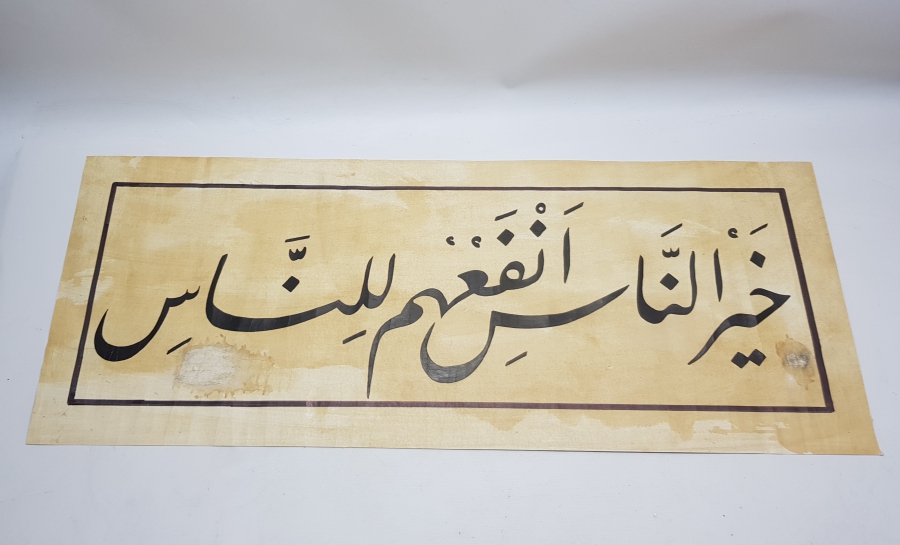 خَيْرُ النَّاسِ اَنْفَعُهُم لِلنَّاسِ